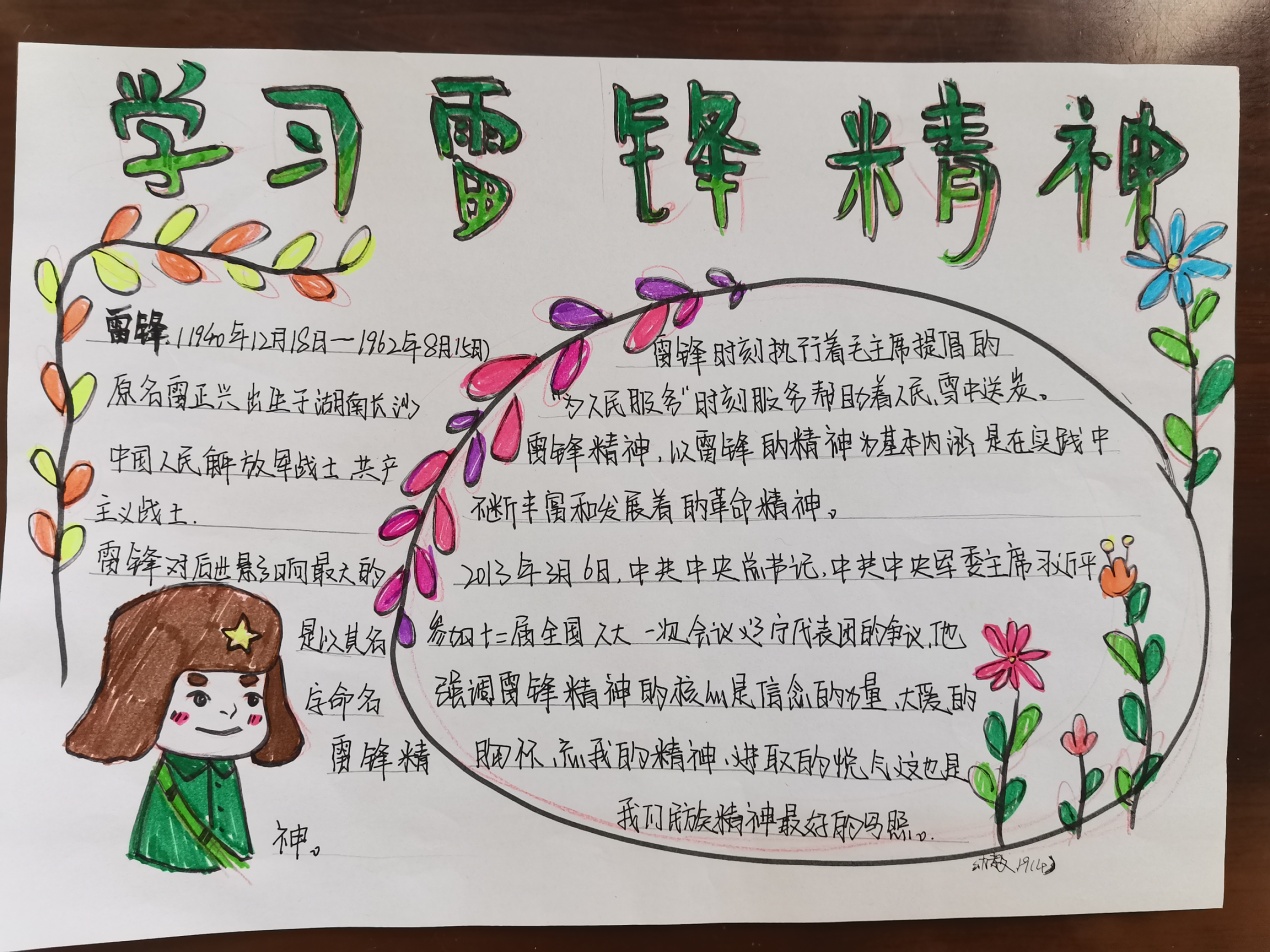 学习雷锋精神
雷锋.(1940年12月18日—1962年8月15日)
原名雷正兴出生于湖南长沙
中国人民解放军战士.共产
主义战士.
雷锋对后世影响最大的
是以其名
字命名
雷锋精
神。
雷锋时刻执行着毛主席提倡的
"为人民服务"时刻服务帮助着人民,雪中送炭。
雷锋精神,以雷锋的精神为基本内涵是在实践中
不断丰富和发展着的革命精神。
2013年3月6日,中共中央总书记,中共中央军委主席习近平
参加十二届全国人大一次会议辽宁代表团的争议,他
强调雷锋精神的核心是信念的力量、大爱的
胸怀、忘我的精神、进取的锐气这也是
我们民族精神最好的写照。
幼教19(4)